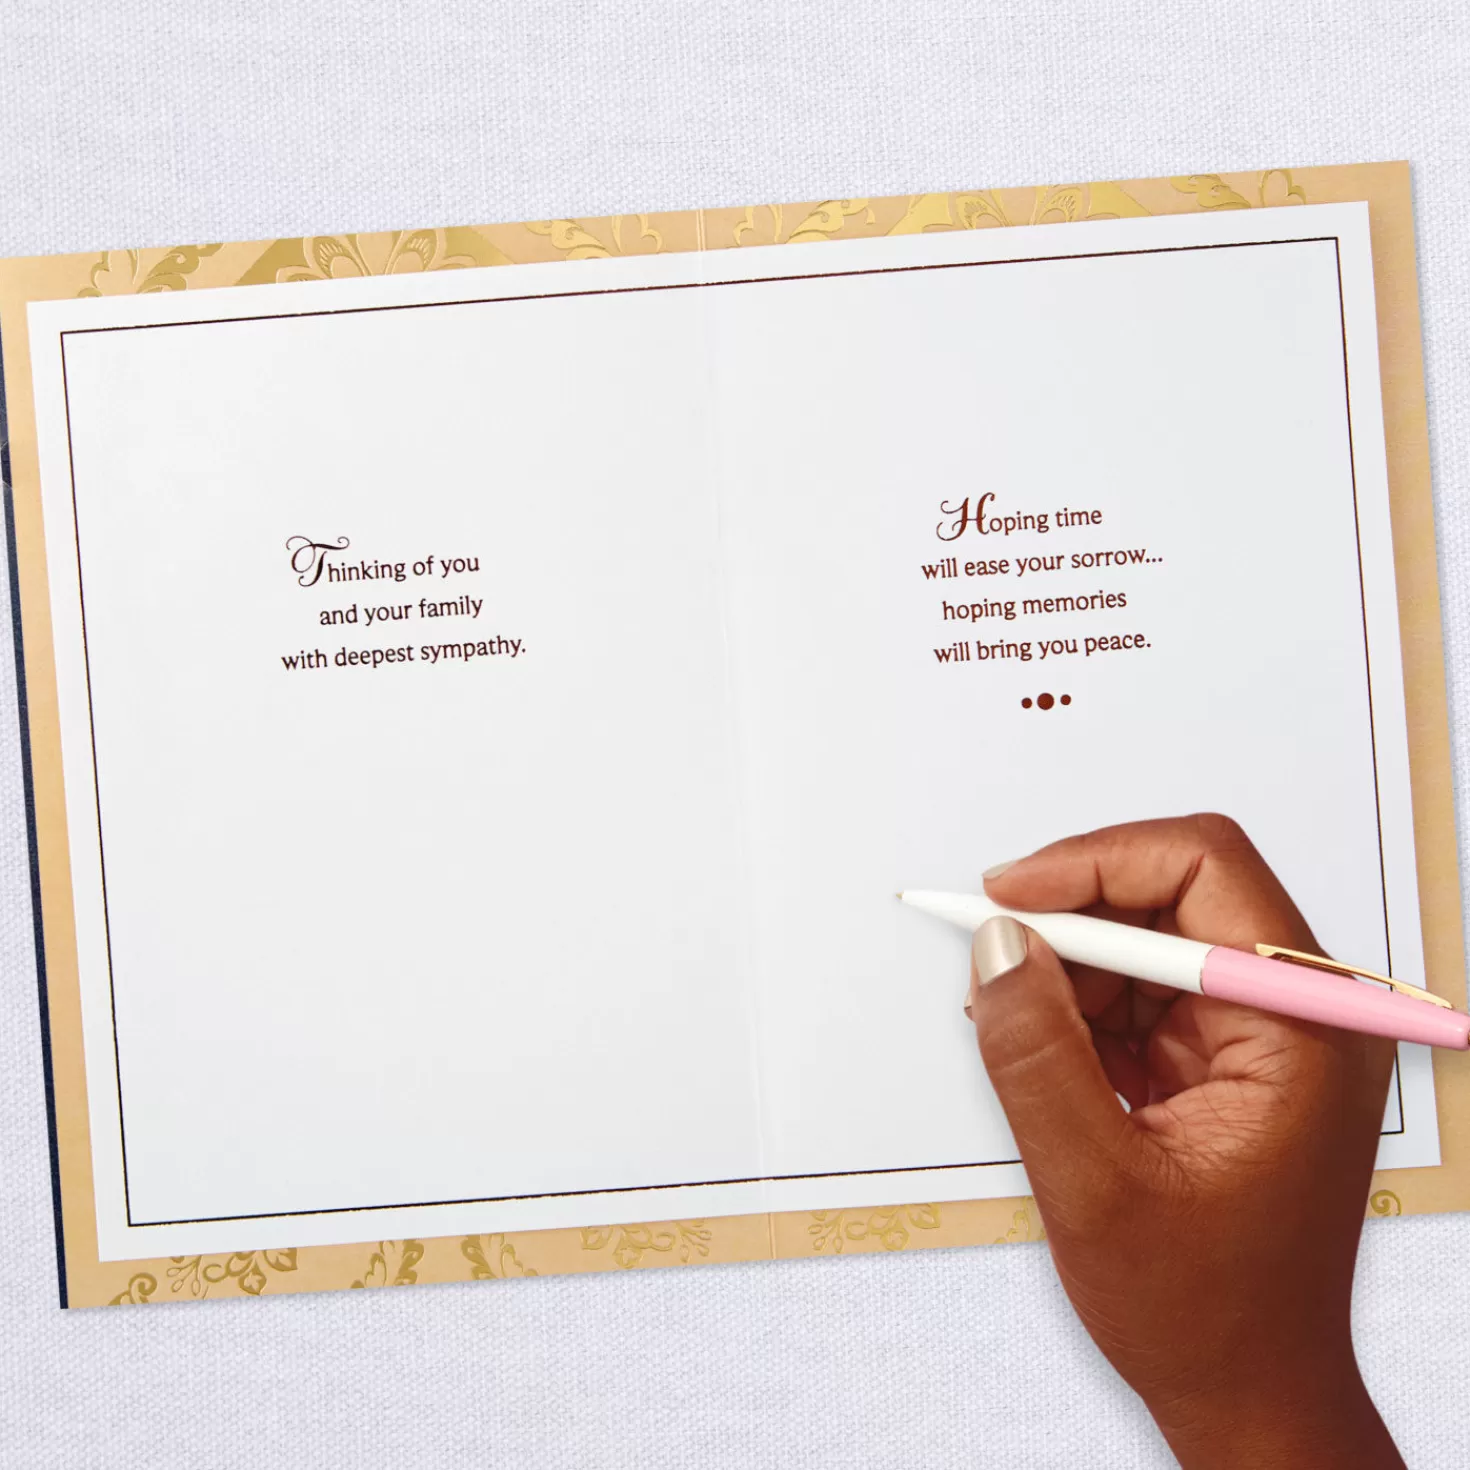 Thinking of you
and your family
with deepest sympathy.
Hoping time
will ease your sorrow...
hoping memories
will bring you peace.